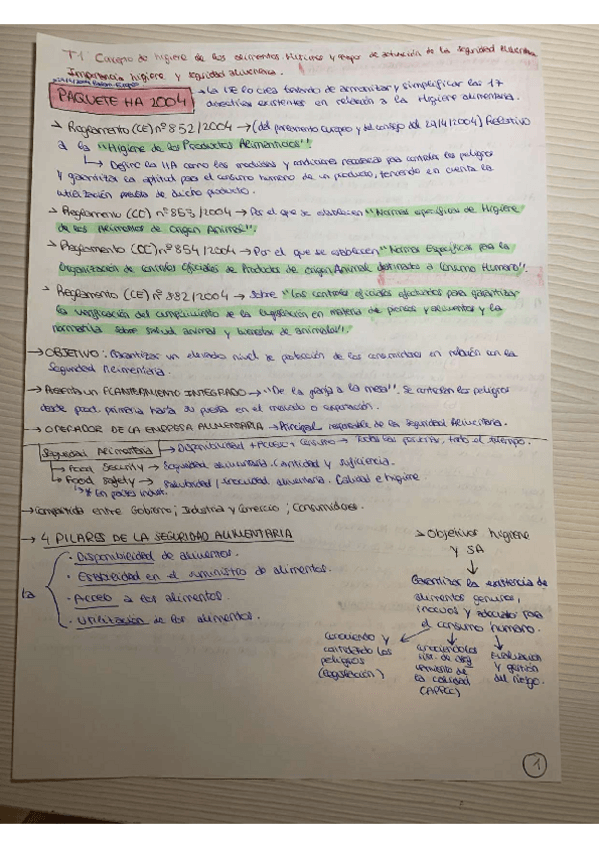 T.1 Concepto de higiene de los alimentos. Historia y campo de actuación de la Seguridad Alimentaria.
Importancia higiene y seguridad alimentaria.
PAQUETE HA 2004 → la UE lo crea tratando de armonizar y simplificar las 17
directivas existentes en relación a la Higiene alimentaria.
→ Reglamento (CE) nº 852/2004 → (del parlamento Europeo y del consejo del 29/4/2004) Relativo
a la "Higiene de los Productos Alimenticios"!
↳ Define la HA como las medidas y condiciones necesarias para controlar los peligros
y garantizar la aptitud para el consumo humano de un producto, teniendo en cuenta la
utilización prevista de dicho producto.
→ Reglamento (CE) nº 853/2004 → Por el que se establecen "Normas específicas de Higiene
de los alimentos de Origen Animal".
→ Reglamento (CE) nº 854/2004 → Por el que se establecen "Normas Específicas para la
Organización de controles oficiales de Productos de origen Animal destinados a Consumo Humano".
→ Reglamento (CE) nº 882/2004 → Sobre "Los controles oficiales efectuados para garantizar
la verificación del cumplimiento de la legislación en materia de piensos y alimentos y la
normativa sobre salud animal y bienestar de animales".
→ OBJETIVO: Garantizar un elevado nivel de protección de los consumidores en relación con la
Seguridad Alimentaria.
→ PLANTEAMIENTO INTEGRADO → "De la granja a la mesa". Se controlan los peligros
desde prod. primaria hasta su puesta en el mercado o exportación.
→ OPERADOR DE LA EMPRESA ALIMENTARIA → Principal responsable de la Seguridad Alimentaria.
Seguridad Alimentaria → Disponibilidad + Acceso + Consumo → Todas las personas, todo el tiempo.
↳ Food Security → Seguridad alimentaria. Cantidad y suficiencia.
↳ Food Safety → Salubridad / Inocuidad alimentaria. Calidad e higiene.
↳ * En países indust.
→ Compartida entre Gobierno; Industria y Comercio; Consumidores.
→ 4 PILARES DE LA SEGURIDAD ALIMENTARIA
· Disponibilidad de alimentos.
· Estabilidad en el suministro de alimentos.
· Acceso a los alimentos.
· Utilización de los alimentos.
→ Objetivos higiene
y SA
Garantizar la existencia de
alimentos genuinos,
inocuos y adecuados para
el consumo humano.
Conociendo y
controlando los
peligros
(Legislación)
la calidad
(APPCC)
Evaluación
y gestión
del riesgo.
1